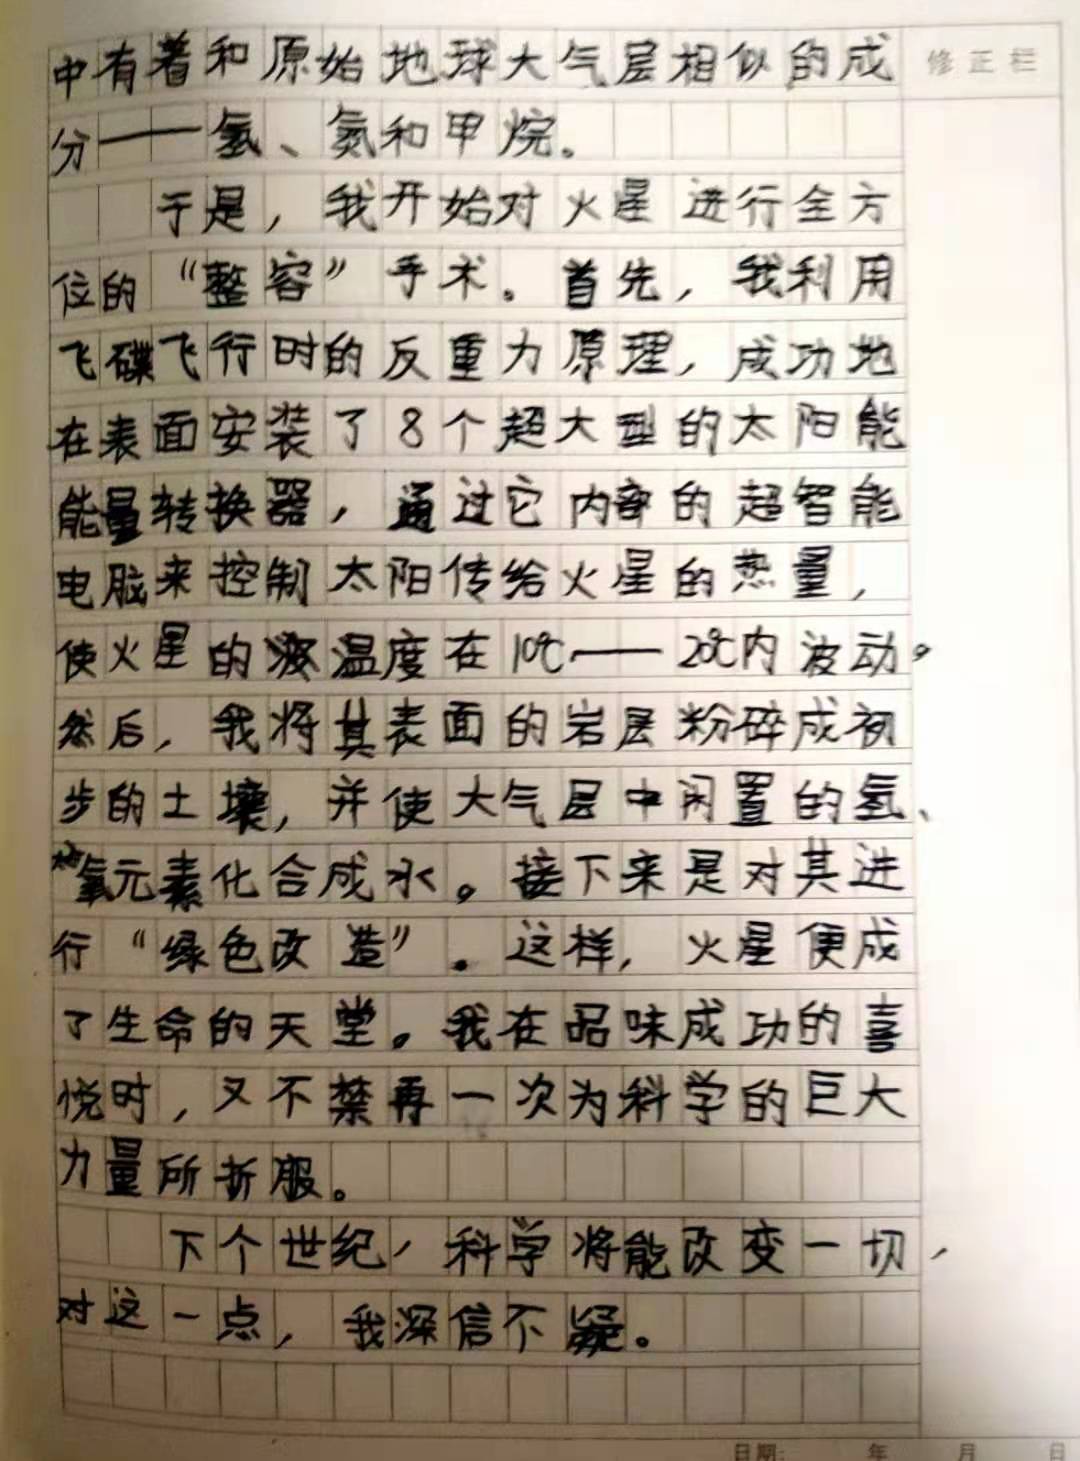 中有着和原始地球大气层相似的成
修正栏
分——氢、氮和甲烷。
于是，我开始对火星进行全方
位的“整容”手术。首先，我利用
飞碟飞行时的反重力原理，成功地
在表面安装了8个超大型的太阳能
能量转换器，通过它内部的超智能
电脑来控制太阳传给火星的热量，
使火星的温度在10℃——20℃内波动。
然后，我将其表面的岩层粉碎成初
步的土壤，并使大气层中闲置的氢、
氧元素化合成水。接下来是对其进
行“绿色改造”。这样，火星便成
了生命的天堂。我在品味成功的喜
悦时，又不禁再一次为科学的巨大
力量所折服。
下个世纪，科学将能改变一切，
对这一点，我深信不疑。
日期: 年 月 日